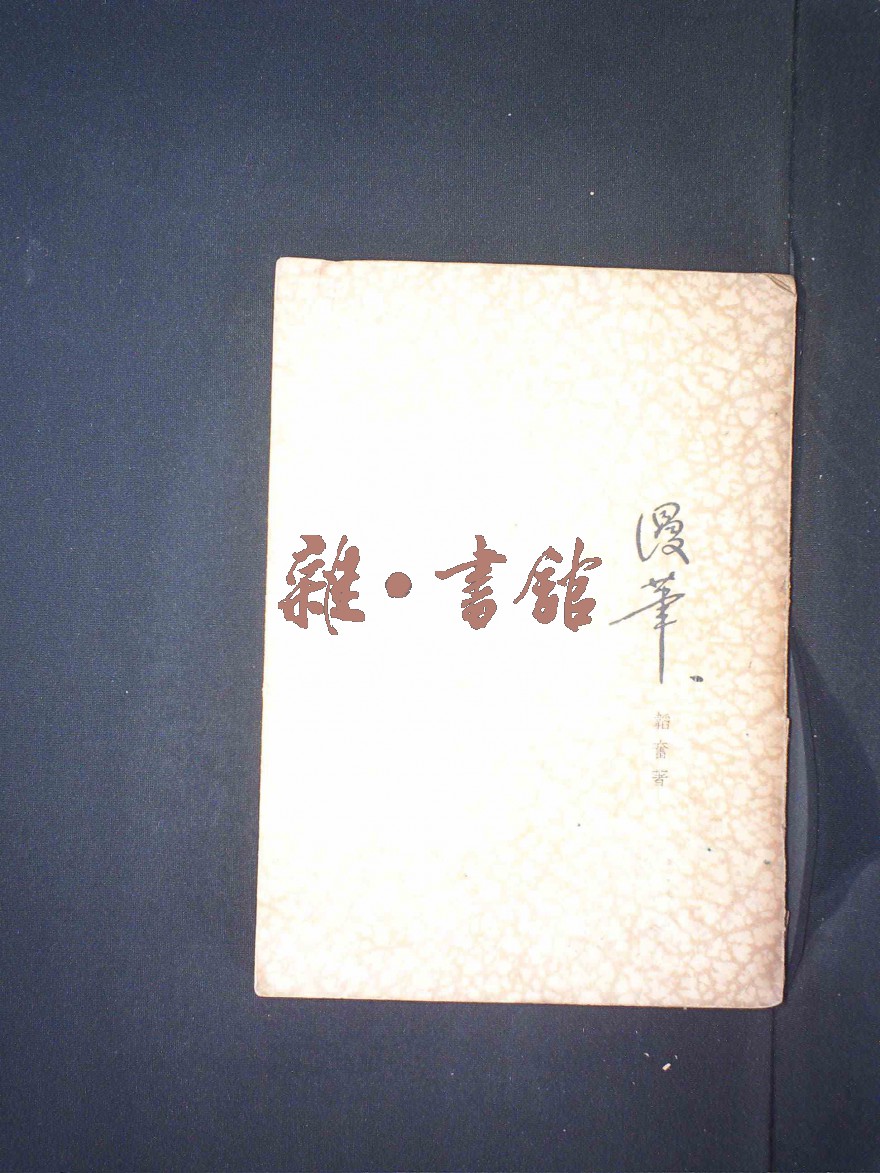 漫筆
韜奮著
雜·書館